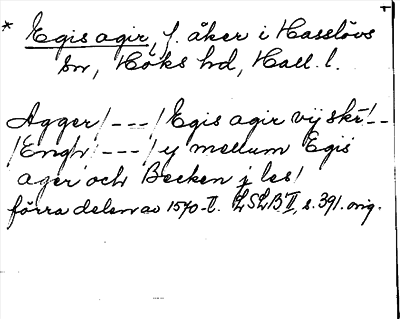 * Egis agir, f. åker i Hasslövs
sn, Höks hd, Hall. l.
Agger /---/ Egis agir vij skr! --
/Engh /---/ y mellum Egis
ager och Becken j les /
förra delen av 1570-t. LSLB II, s. 391. orig.